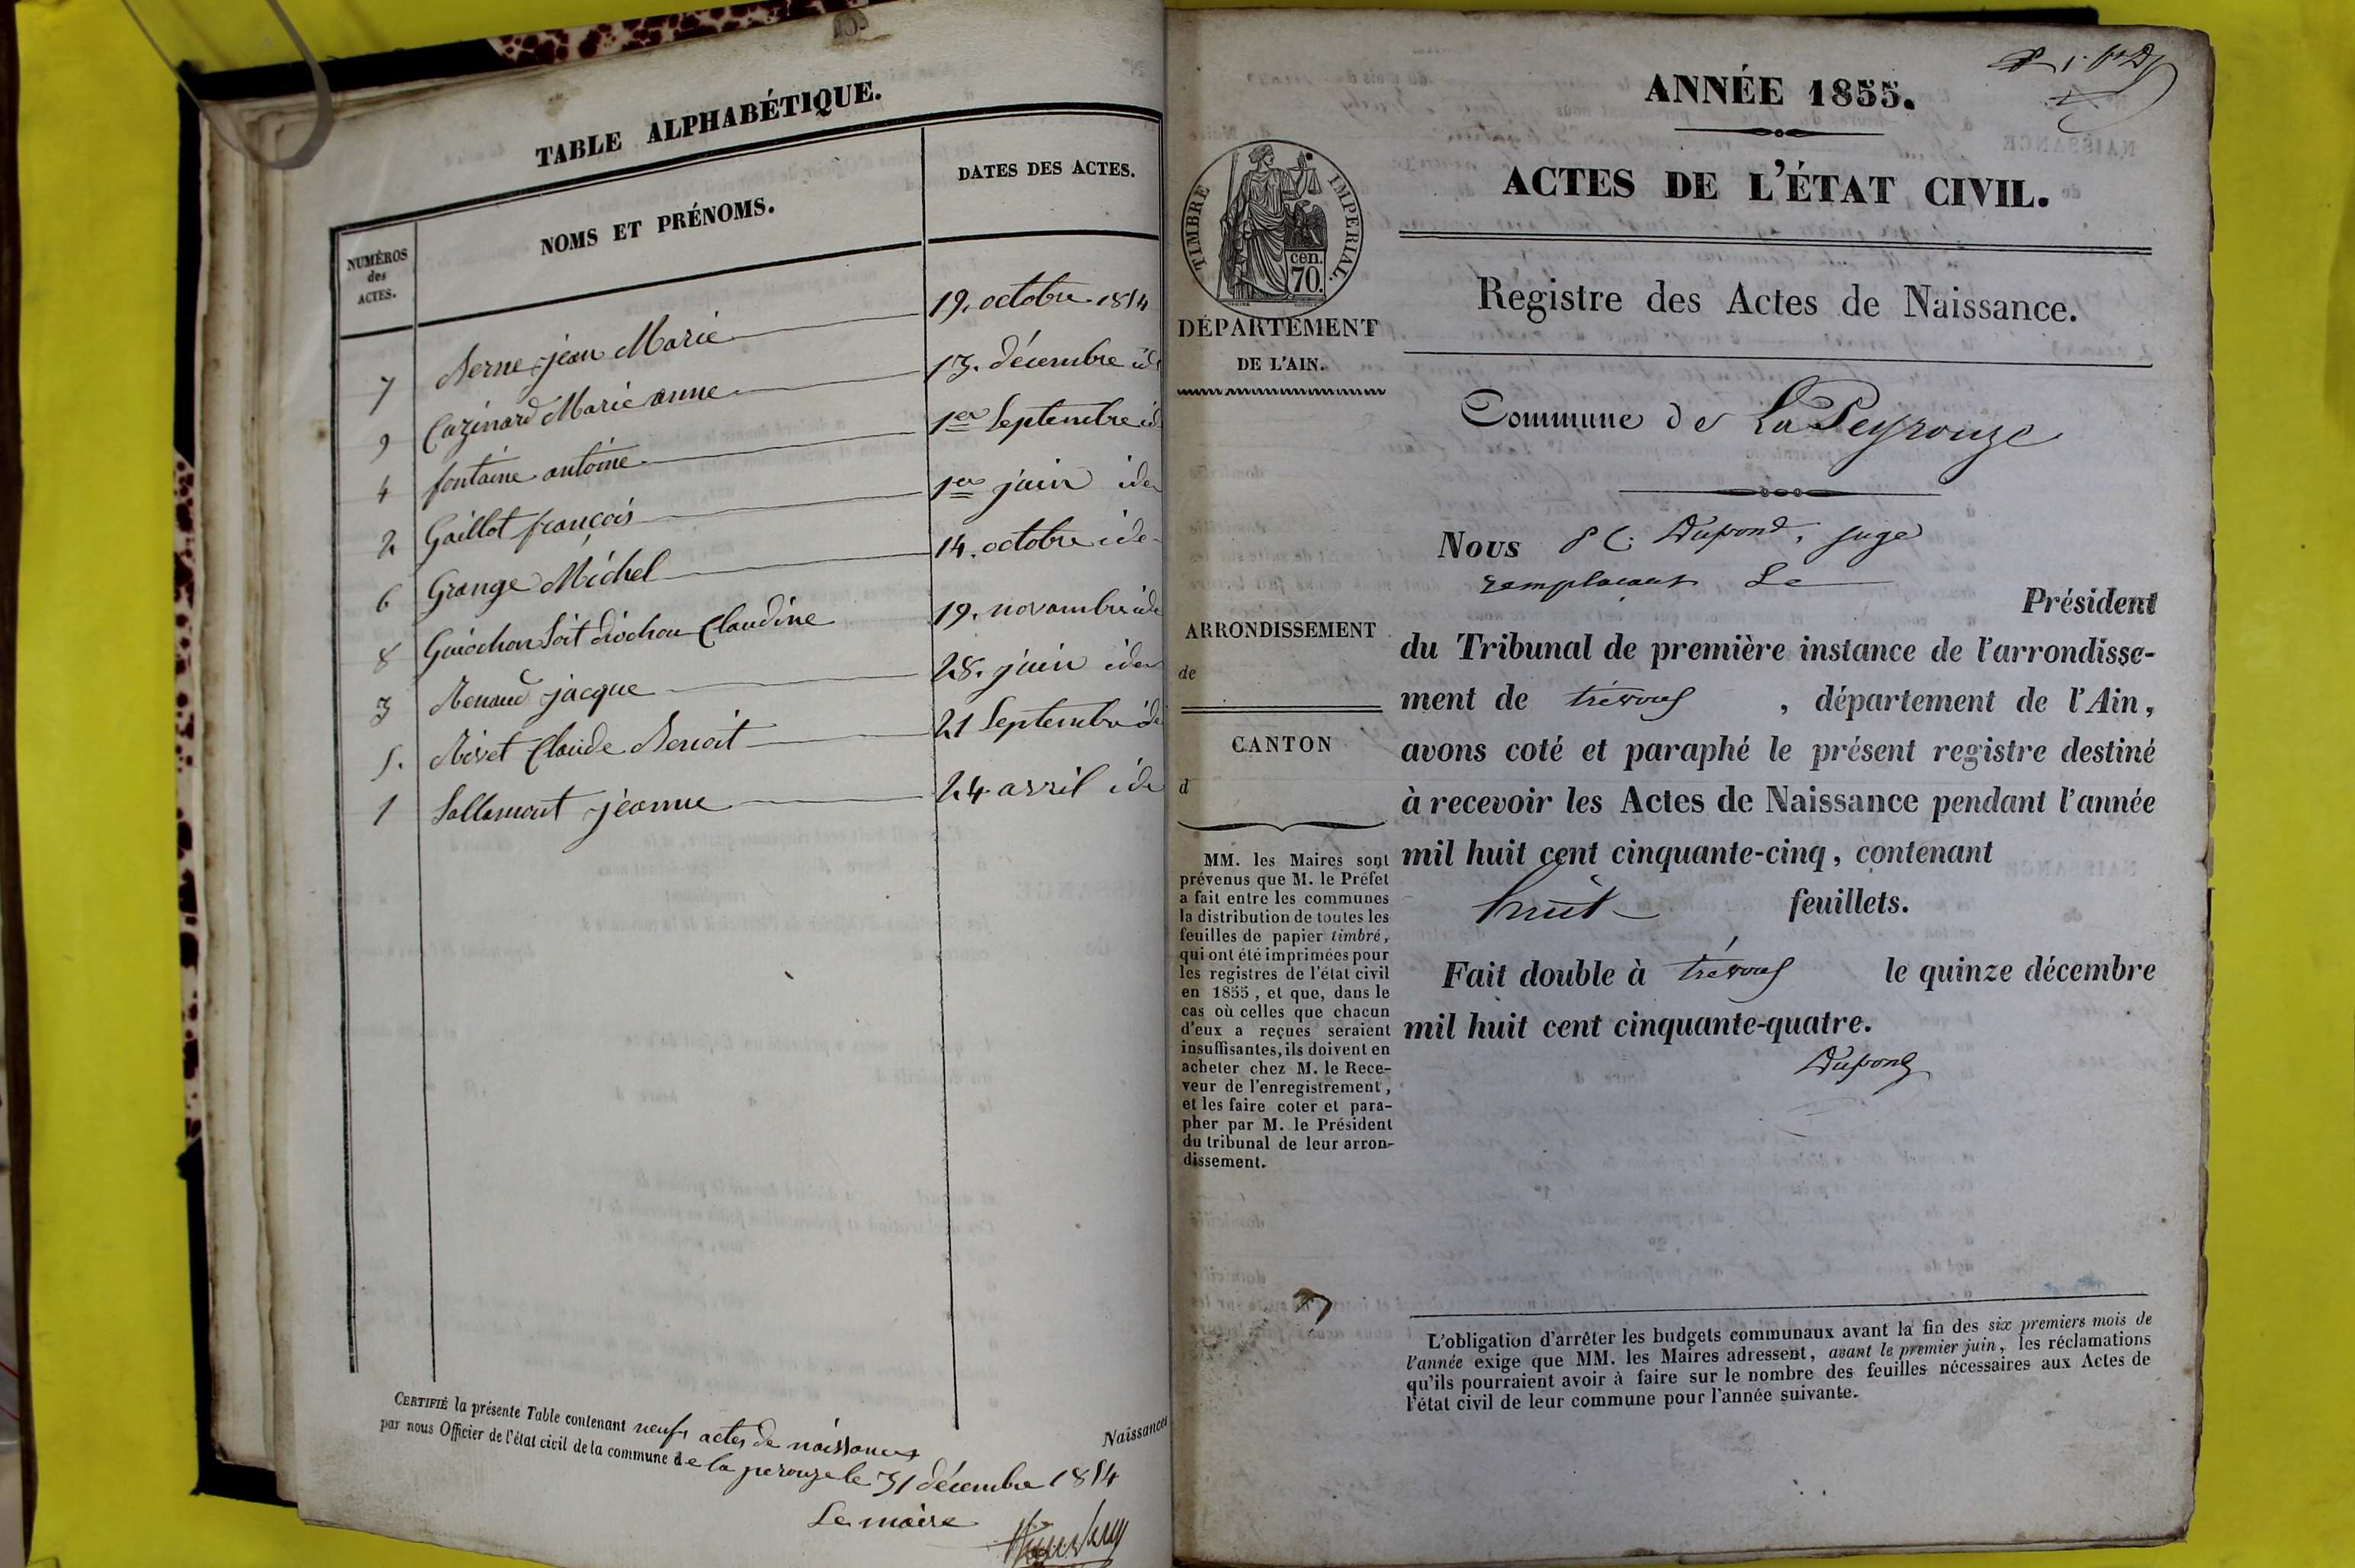 TABLE ALPHABÉTIQUE.
NUMÉROS des ACTES.
NOMS ET PRÉNOMS.
DATES DES ACTES.
7 Berne jean Marie 19. octobre 1854
9 Cazinard Marie anne 13. décembre id
4 fontaine antoine 1er Septembre id
2 Gaillot françois 1er juin iden
6 Grange Michel 14. octobre ide
8 Guichon Soit Claudine 19. novembre ide
3 Renaud jacque 28. juin iden
5. Rivet Claude Benoit 21 Septembre ide
1 Sallamout jeanne 24 avril ide
CERTIFIÉ la présente Table contenant neufs actes de naissances
par nous Officier de l'état civil de la commune de la perouze le 31 décembre 1854
Le maire
Naissances
ANNÉE 1855.
ACTES DE L'ÉTAT CIVIL.
TIMBRE IMPERIAL.
cen.
70.
DÉPARTEMENT
DE L'AIN.
ARRONDISSEMENT
de
CANTON
d
MM. les Maires sont
prévenus que M. le Préfet
a fait entre les communes
la distribution de toutes les
feuilles de papier timbré,
qui ont été imprimées pour
les registres de l'état civil
en 1855, et que, dans le
cas où celles que chacun
d'eux a reçues seraient
insuffisantes, ils doivent en
acheter chez M. le Rece-
veur de l'enregistrement,
et les faire coter et para-
pher par M. le Président
du tribunal de leur arron-
dissement.
Registre des Actes de Naissance.
Commune de La Peyrouze
Nous Dupond, juge
remplacant Le
Président
du Tribunal de première instance de l'arrondisse-
ment de trévoux, département de l'Ain,
avons coté et paraphé le présent registre destiné
à recevoir les Actes de Naissance pendant l'année
mil huit cent cinquante-cinq, contenant
huit feuillets.
Fait double à trévoux le quinze décembre
mil huit cent cinquante-quatre.
Dupond
L'obligation d'arrêter les budgets communaux avant la fin des six premiers mois de
l'année exige que MM. les Maires adressent, avant le premier juin, les réclamations
qu'ils pourraient avoir à faire sur le nombre des feuilles nécessaires aux Actes de
l'état civil de leur commune pour l'année suivante.